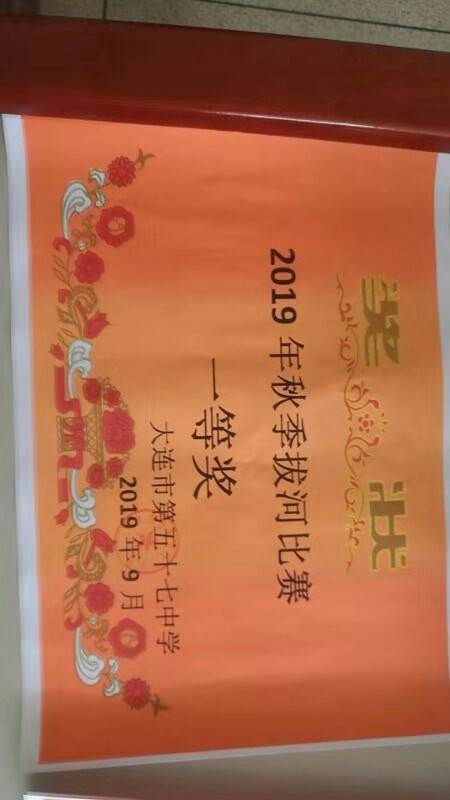 奖状
2019 年秋季拔河比赛
一等奖
大连市第五十七中学
2019 年 9 月